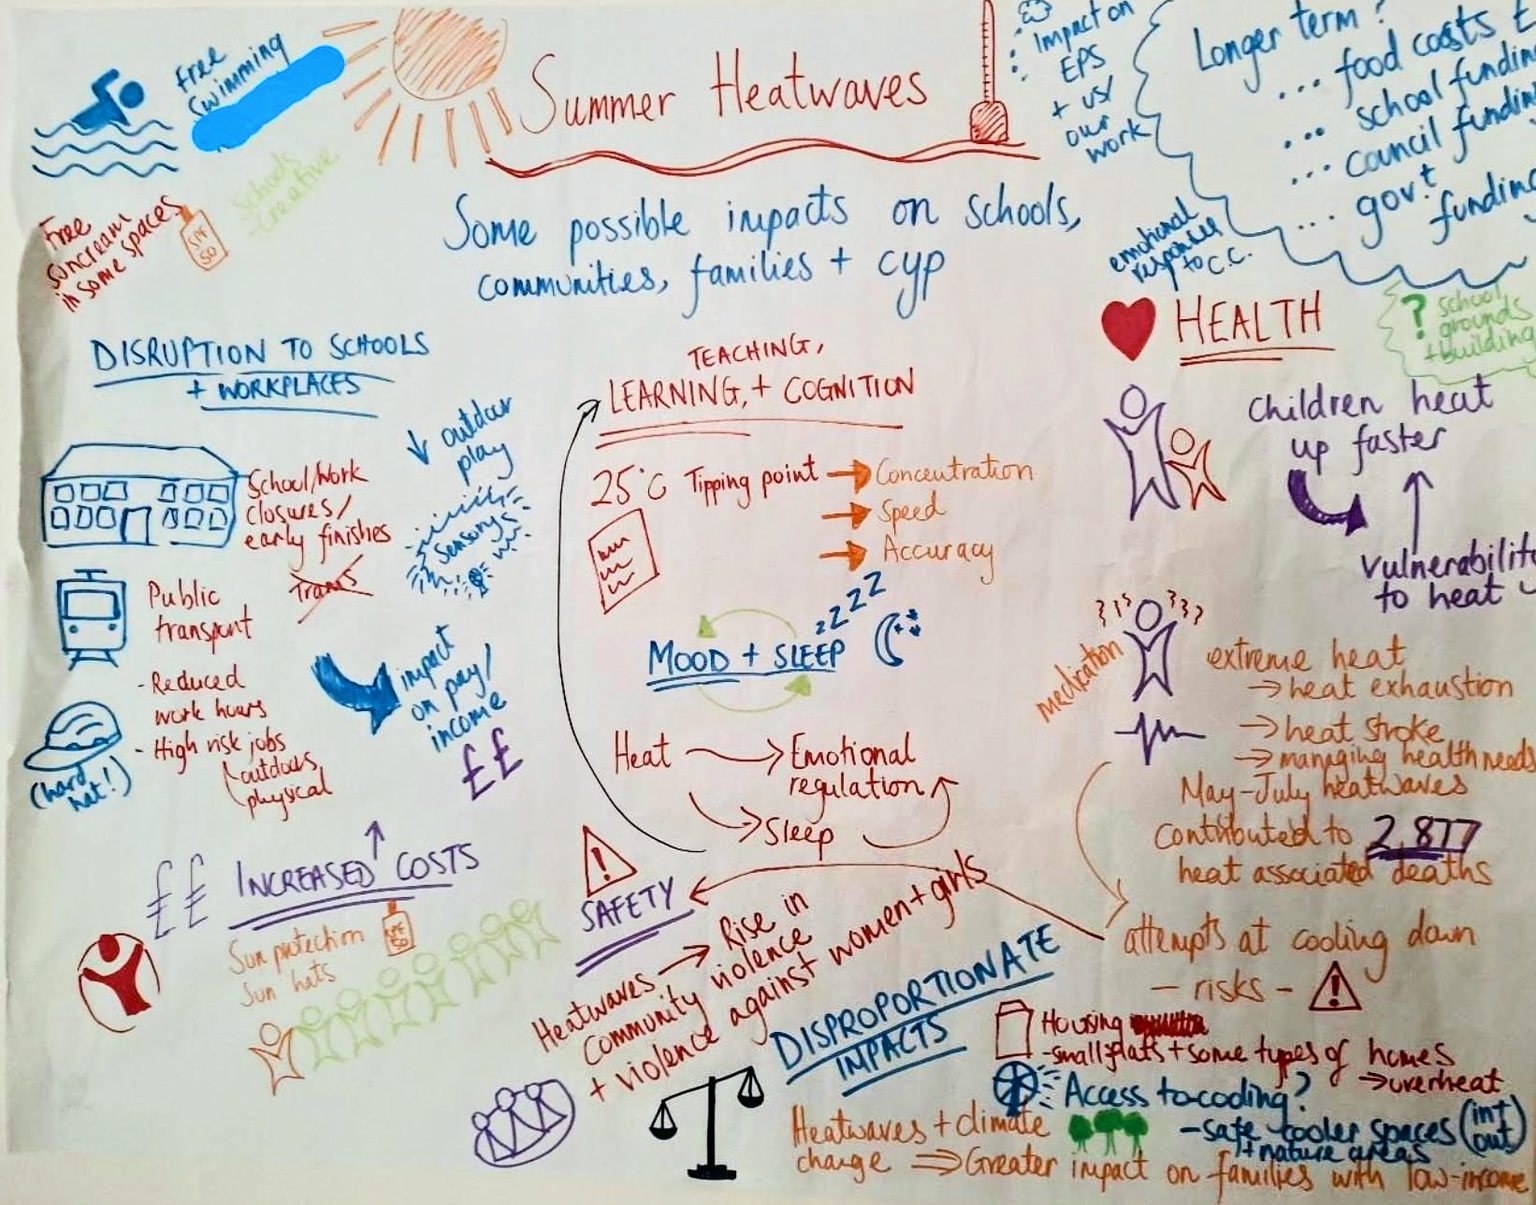 Free
Swimming
Summer Heatwaves
Impact on
EPS
+ us/
our
work
Longer term?
... food costs £
... school fundin
... council fundin
... gov't
funding
Schools
-Creative
Free
suncream
in some spaces
SPF
50
Some possible impacts on schools,
communities, families + cyp
emotional
response
to C.C.
HEALTH
? school
grounds
+building
DISRUPTION TO SCHOOLS
+ WORKPLACES
School/work
closures/
early finishes
↓ outdoor
play
Sensory
Trans
Public
transport
- Reduced
work hours
- High risk jobs
outdous,
physical
(hard
hat!)
impact
on pay/
income
££
TEACHING,
LEARNING, + COGNITION
25°C Tipping point → Concentration
→ Speed
→ Accuracy
zzzz
MOOD + SLEEP
Heat → Emotional
regulation
→ Sleep
children heat
up faster
vulnerability
to heat
medication
extreme heat
→ heat exhaustion
→ heat stroke
→ managing health needs
May-July heatwaves
contributed to 2,877
heat associated deaths
attempts at cooling down
- risks - !
££ INCREASED COSTS ↑
Sun protection
Sun hats
SPF
50
!
SAFETY
Heatwaves → Rise in
community violence
+ violence against women + girls
DISPROPORTIONATE
IMPACTS
Housing
-small flats + some types of homes
→ overheat
Access to cooling?
- safe cooler spaces (int
out)
+ nature areas
Heatwaves + climate
change ⇒ Greater impact on families with low-income